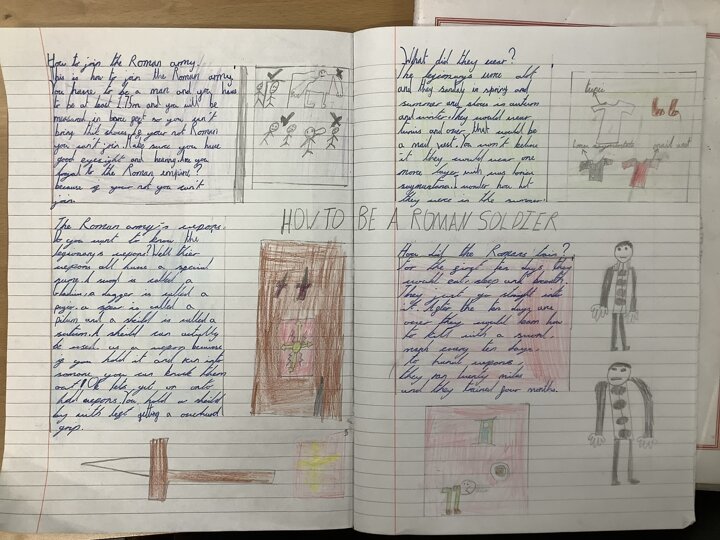 How to join the Roman army.
This is how to join the Roman army.
You have to be a man and you have
to be at least 1.73m and you will be
measured in bare feet so you can't
bring thick shoes. If your not Roman
you can't join. Make sure you have
good eyesight and hearing. Are you
loyal to the Roman empire?
because if your not you can't
join.
The Roman army's wepons.
Do you want to know the
legionary's wepons? Well thier
wepons all have a special
name. A sword is called a
Gladius, a dagger is called a
pugio, a spear is called a
pilum and a sheild is called a
scutum. A sheild can actually
be used as a wepon because
if you hold it and run into
somone you can knock them
out!
hold wepons. You hold a sheild
by with left getting a overhand
grip.
HOW TO BE A ROMAN SOLDIER
What did they wear?
The legionary's wore alot
and they sandals in spring and
summer and shoes in autumn
and winter. They would wear
tunics and over that would be
a mail vest. You won't believe
it they would wear one
more layer
segmentata. I wonder how hot
they were in the summer.
tunic
mail vest
How did the Romans train?
For the first ten days, they
would eat, sleep and breath.
They
it. After the ten days are
over they would learn how
to kill with a sword.
every ten days.
wepons.
they ran twenty miles
and they trained four months.